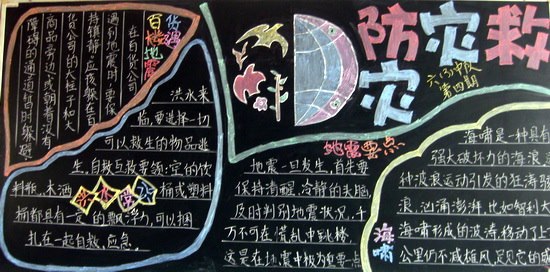 防灾救灾
六(3)中队
第四期
百货楼遇地震
在百货公司
遇到地震时,要保
持镇静。应找躲在百
货公司的大柱子和大
商品旁边,或朝着没有
障碍的通道
洪水来
临,要选择一切
可以救生的物品逃
生,自救互救要领:空的饮
料瓶、木酒桶或塑料
桶都具有一定的飘浮力,可以捆
扎在一起自救、应急。
洪水
地震要点
地震一旦发生,首先要
保持清醒、冷静的头脑,
及时判别地震状况,千
万不可在慌乱中跳楼,
这是在地震中极为重要点
海啸
海啸是一种具有
强大破坏力的海浪
种波浪运动引发的狂涛骇
浪,汹涌澎湃,比如智利大
海啸形成的波涛移动了上
公里仍不减雄风,足见它的威